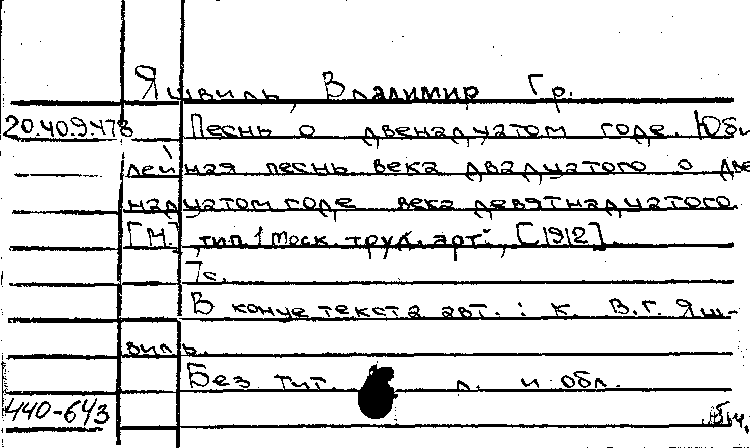 Яшвиль, Владимир Гр.
20.40.9.478 Песнь о двенадцатом годе. Юби
лейная песнь века двадцатого о две
надцатом годе века девятнадцатого.
[М.], тип. 1 Моск. труд. арт., [1912].
7 с.
В конце текста авт.: к. В.Г. Яш-
виль.
Без тит. л. и обл.
440-643